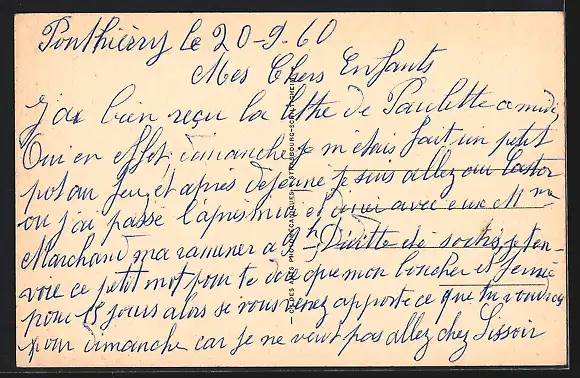 Ponthierry le 20-9-60
Mes Chers Enfants
J'ai bien reçu la lettre de Paulette a midi
Oui en effet dimanche je m'étais fait un petit
pot au feu et après dejeuné je suis allez au Castor
ou j'ai passé l'après midi et dinei avec eux Mme
Marchand ma ramener a 9h je
voie ce petit mot pour te dire que mon boucher et fermé
pour 15 jours alors si vous venez apporte ce que tu voudras
pour dimanche car je ne veut pas allez chez Sissoir
CL. DES ARTS PHOTOMECANIQUES STRASBOURG-SCHILTIGHEIM